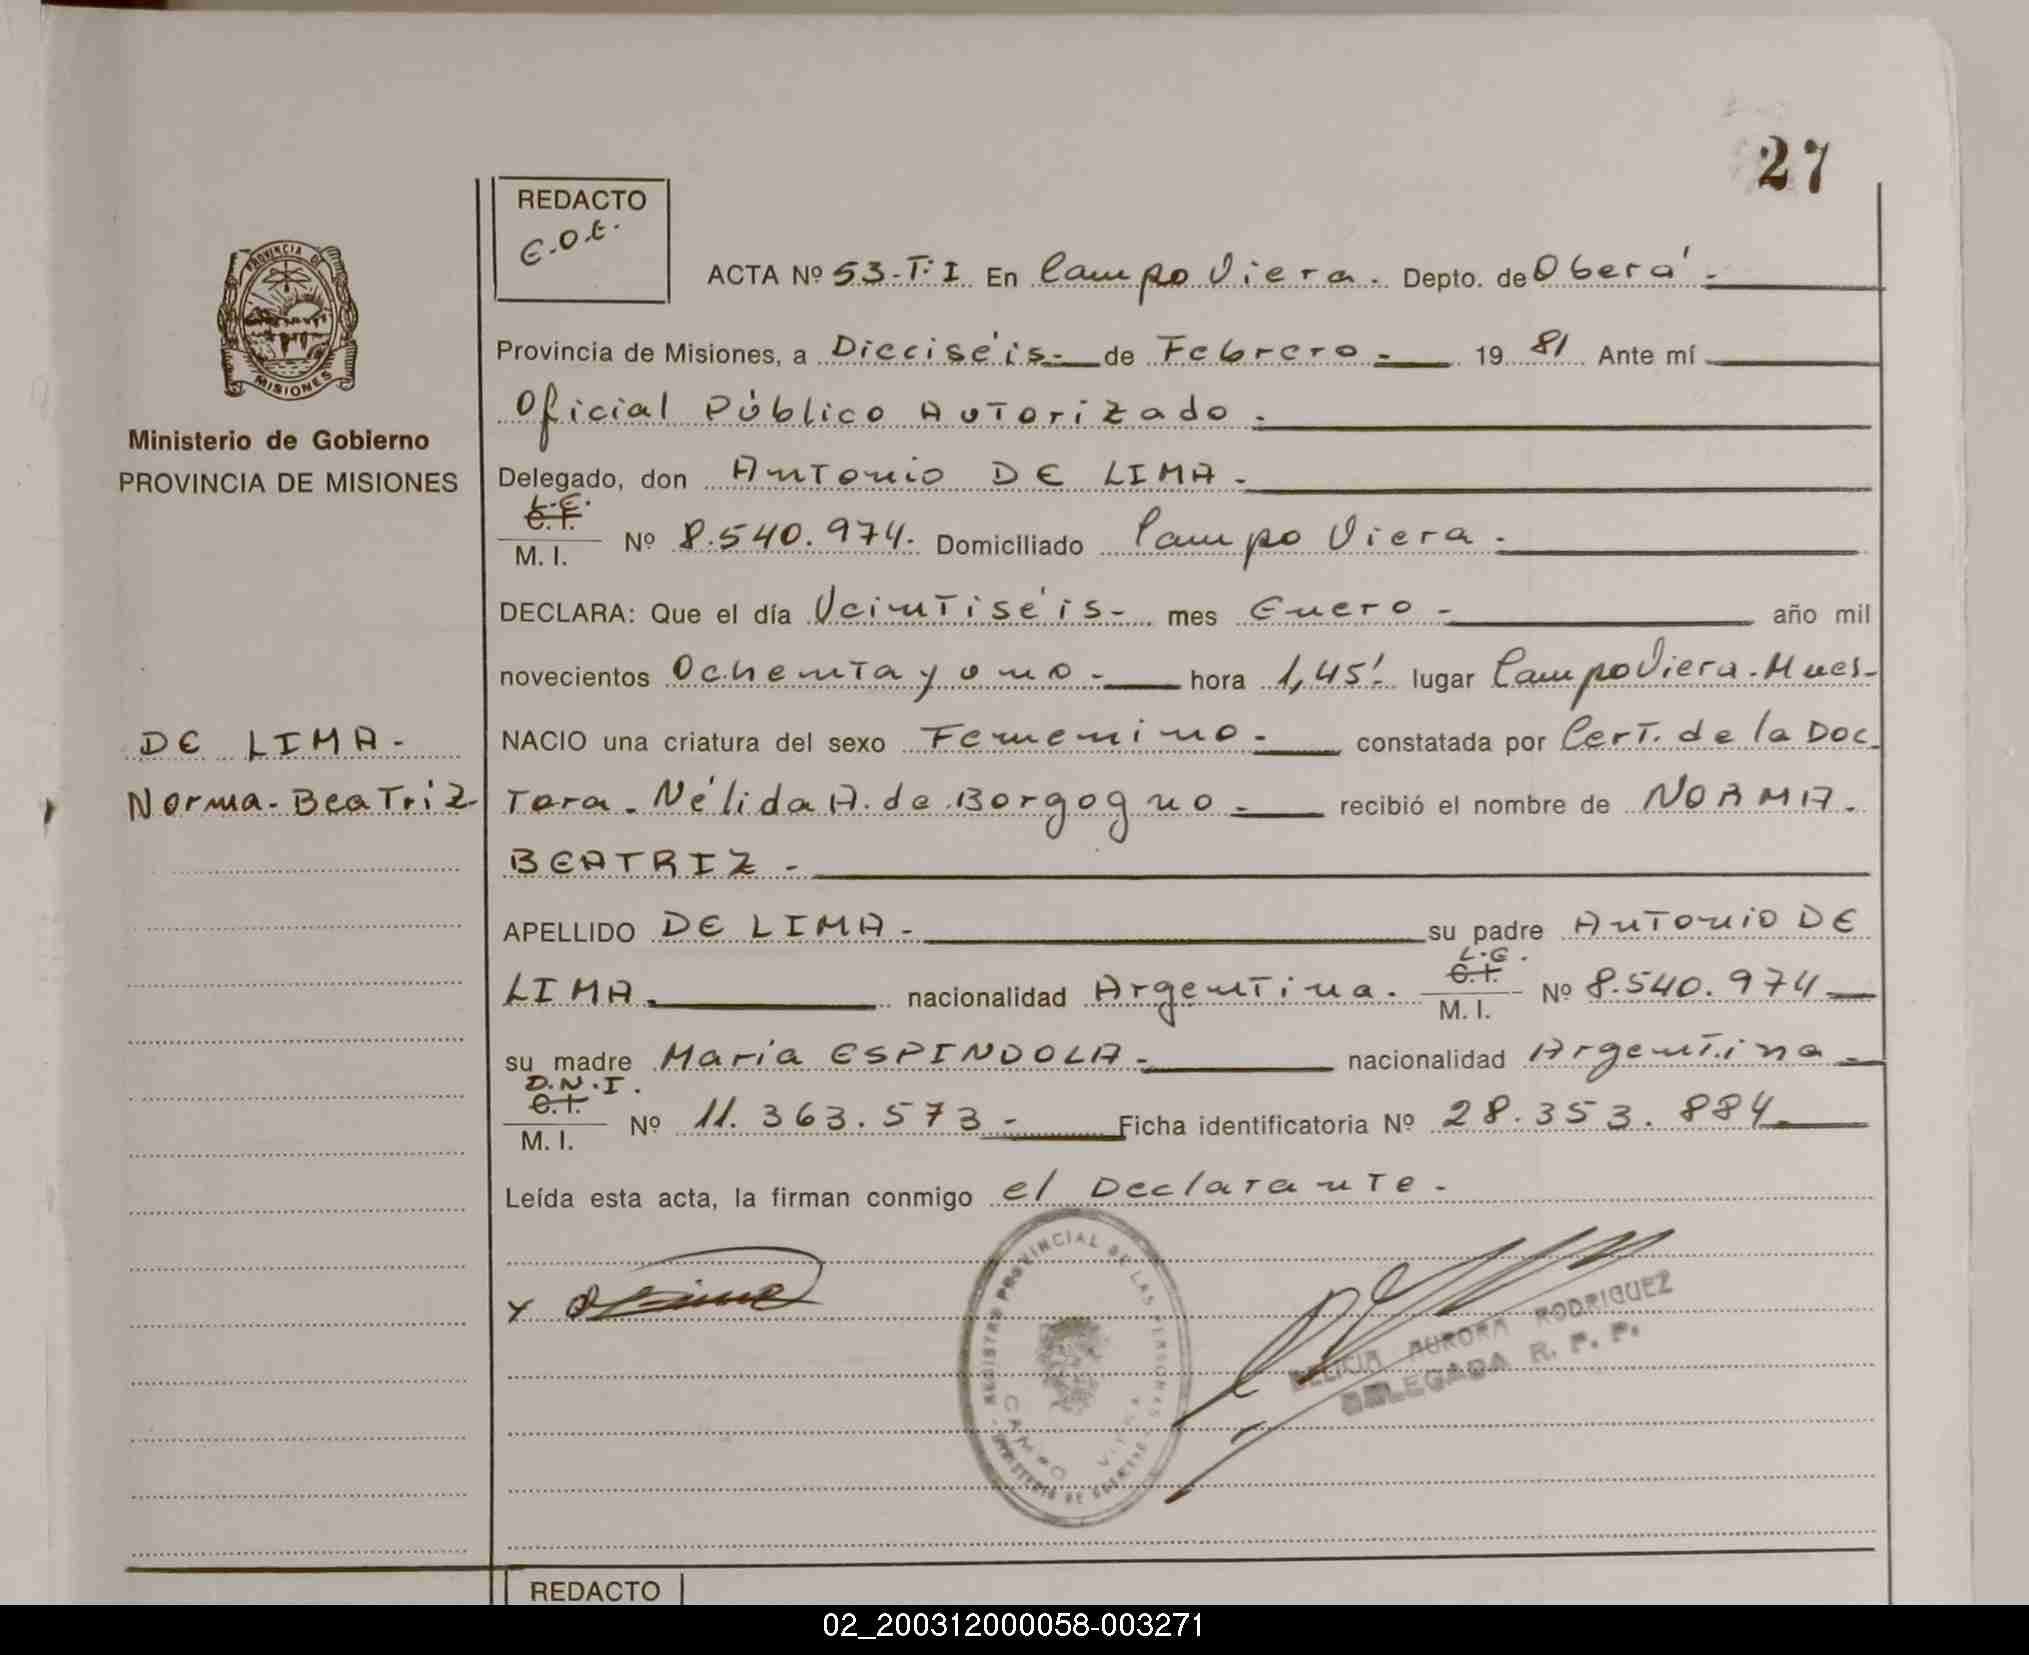 27
REDACTO
E.O.E.
PROVINCIA DE
MISIONES
ACTA Nº 53-T:I En Campo Viera. Depto. de Oberá.-
Provincia de Misiones, a Dieciséis- de Febrero - 19 81 Ante mí
Oficial Público Autorizado.
Ministerio de Gobierno
PROVINCIA DE MISIONES
Delegado, don Antonio DE LIMA.
L.E.
C.I.
M. I. Nº 8.540.974. Domiciliado Campo Viera.
DECLARA: Que el día Veintiséis- mes Enero - año mil
novecientos Ochenta y uno - hora 1,45' lugar Campo Viera. Mnes-
DE LIMA-
NACIO una criatura del sexo Femenino - constatada por Cert. de la Doc
Norma-Beatriz
Tora. Nélida A. de Borgogno - recibió el nombre de NORMA.
BEATRIZ -
APELLIDO DE LIMA - su padre Antonio DE
LIMA. nacionalidad Argentina. L.E. C.I. M. I. Nº 8.540.974
su madre María ESPINDOLA - nacionalidad Argentina -
D.N.I.
C.I.
M. I. Nº 11.363.573 - Ficha identificatoria Nº 28.353.884
Leída esta acta, la firman conmigo el Declarante.
REGISTRO PROVINCIAL DE LAS PERSONAS
CAMPO VIERA
MINISTERIO DE GOBIERNO
AURORA RODRIGUEZ
DELEGADA R. P. P.
REDACTO
02_200312000058-003271